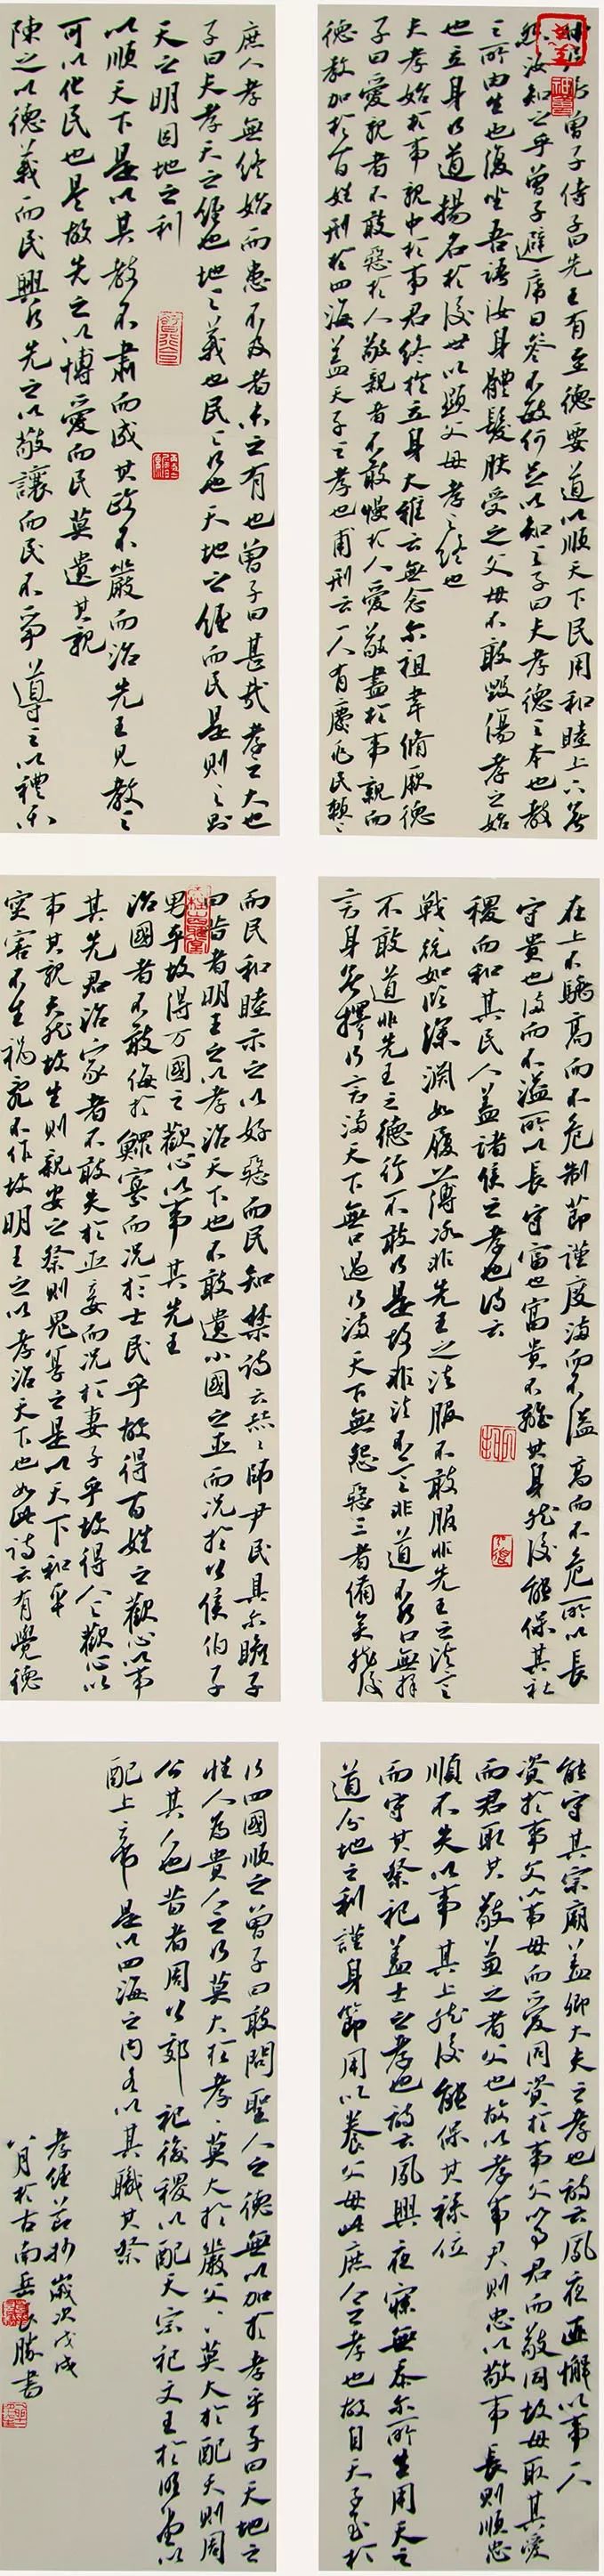 曾子侍子曰先王有至德要道以順天下民用和睦上下無
怨汝知之乎曾子避席曰參不敏何足以知之子曰夫孝德之本也教
之所由生也復坐吾語汝身體髮膚受之父母不敢毀傷孝之始
也立身行道揚名於後世以顯父母孝之終也
夫孝始於事親中於事君終於立身大雅云無念尔祖聿脩厥德
子曰愛親者不敢惡於人敬親者不敢慢於人愛敬盡於事親而
德教加於百姓刑於四海蓋天子之孝也甫刑云一人有慶兆民賴之
在上不驕高而不危制節謹度滿而不溢高而不危所以長
守貴也滿而不溢所以長守富也富貴不離其身然後能保其社
稷而和其民人蓋諸侯之孝也詩云
戰戰兢兢如臨深淵如履薄冰非先王之法服不敢服非先王之法言
不敢道非先王之德行不敢行是故非法不言非道不行口無擇
言身無擇行言滿天下無口過行滿天下無怨惡三者備矣然後
能守其宗廟蓋卿大夫之孝也詩云夙夜匪懈以事一人
資於事父以事母而愛同資於事父以事君而敬同故母取其愛
而君取其敬兼之者父也故以孝事君則忠以敬事長則順忠
順不失以事其上然後能保其祿位
而守其祭祀蓋士之孝也詩云夙興夜寐無忝尔所生用天之
道分地之利謹身節用以養父母此庶人之孝也故自天子至於
庶人孝無終始而患不及者未之有也曾子曰甚哉孝之大也
子曰夫孝天之經也地之義也民之行也天地之經而民是則之則
天之明因地之利
以順天下是以其教不肅而成其政不嚴而治先王見教之
可以化民也是故先之以博愛而民莫遺其親
陳之以德義而民興行先之以敬讓而民不爭導之以禮樂
而民和睦示之以好惡而民知禁詩云赫赫師尹民具尔瞻子
曰昔者明王之以孝治天下也不敢遺小國之臣而况於公侯伯子
男乎故得万國之歡心以事其先王
治國者不敢侮於鰥寡而况於士民乎故得百姓之歡心以事
其先君治家者不敢失於臣妾而况於妻子乎故得人之歡心以
事其親夫然故生則親安之祭則鬼享之是以天下和平
災害不生禍亂不作故明王之以孝治天下也如此詩云有覺德
行四國順之曾子曰敢問聖人之德無以加於孝乎子曰天地之
性人為貴人之行莫大於孝孝莫大於嚴父嚴父莫大於配天則周
公其人也昔者周公郊祀後稷以配天宗祀文王於明堂以
配上帝是以四海之內各以其職其祭
孝經節抄歲次戊戌
八月於古南岳 勝書